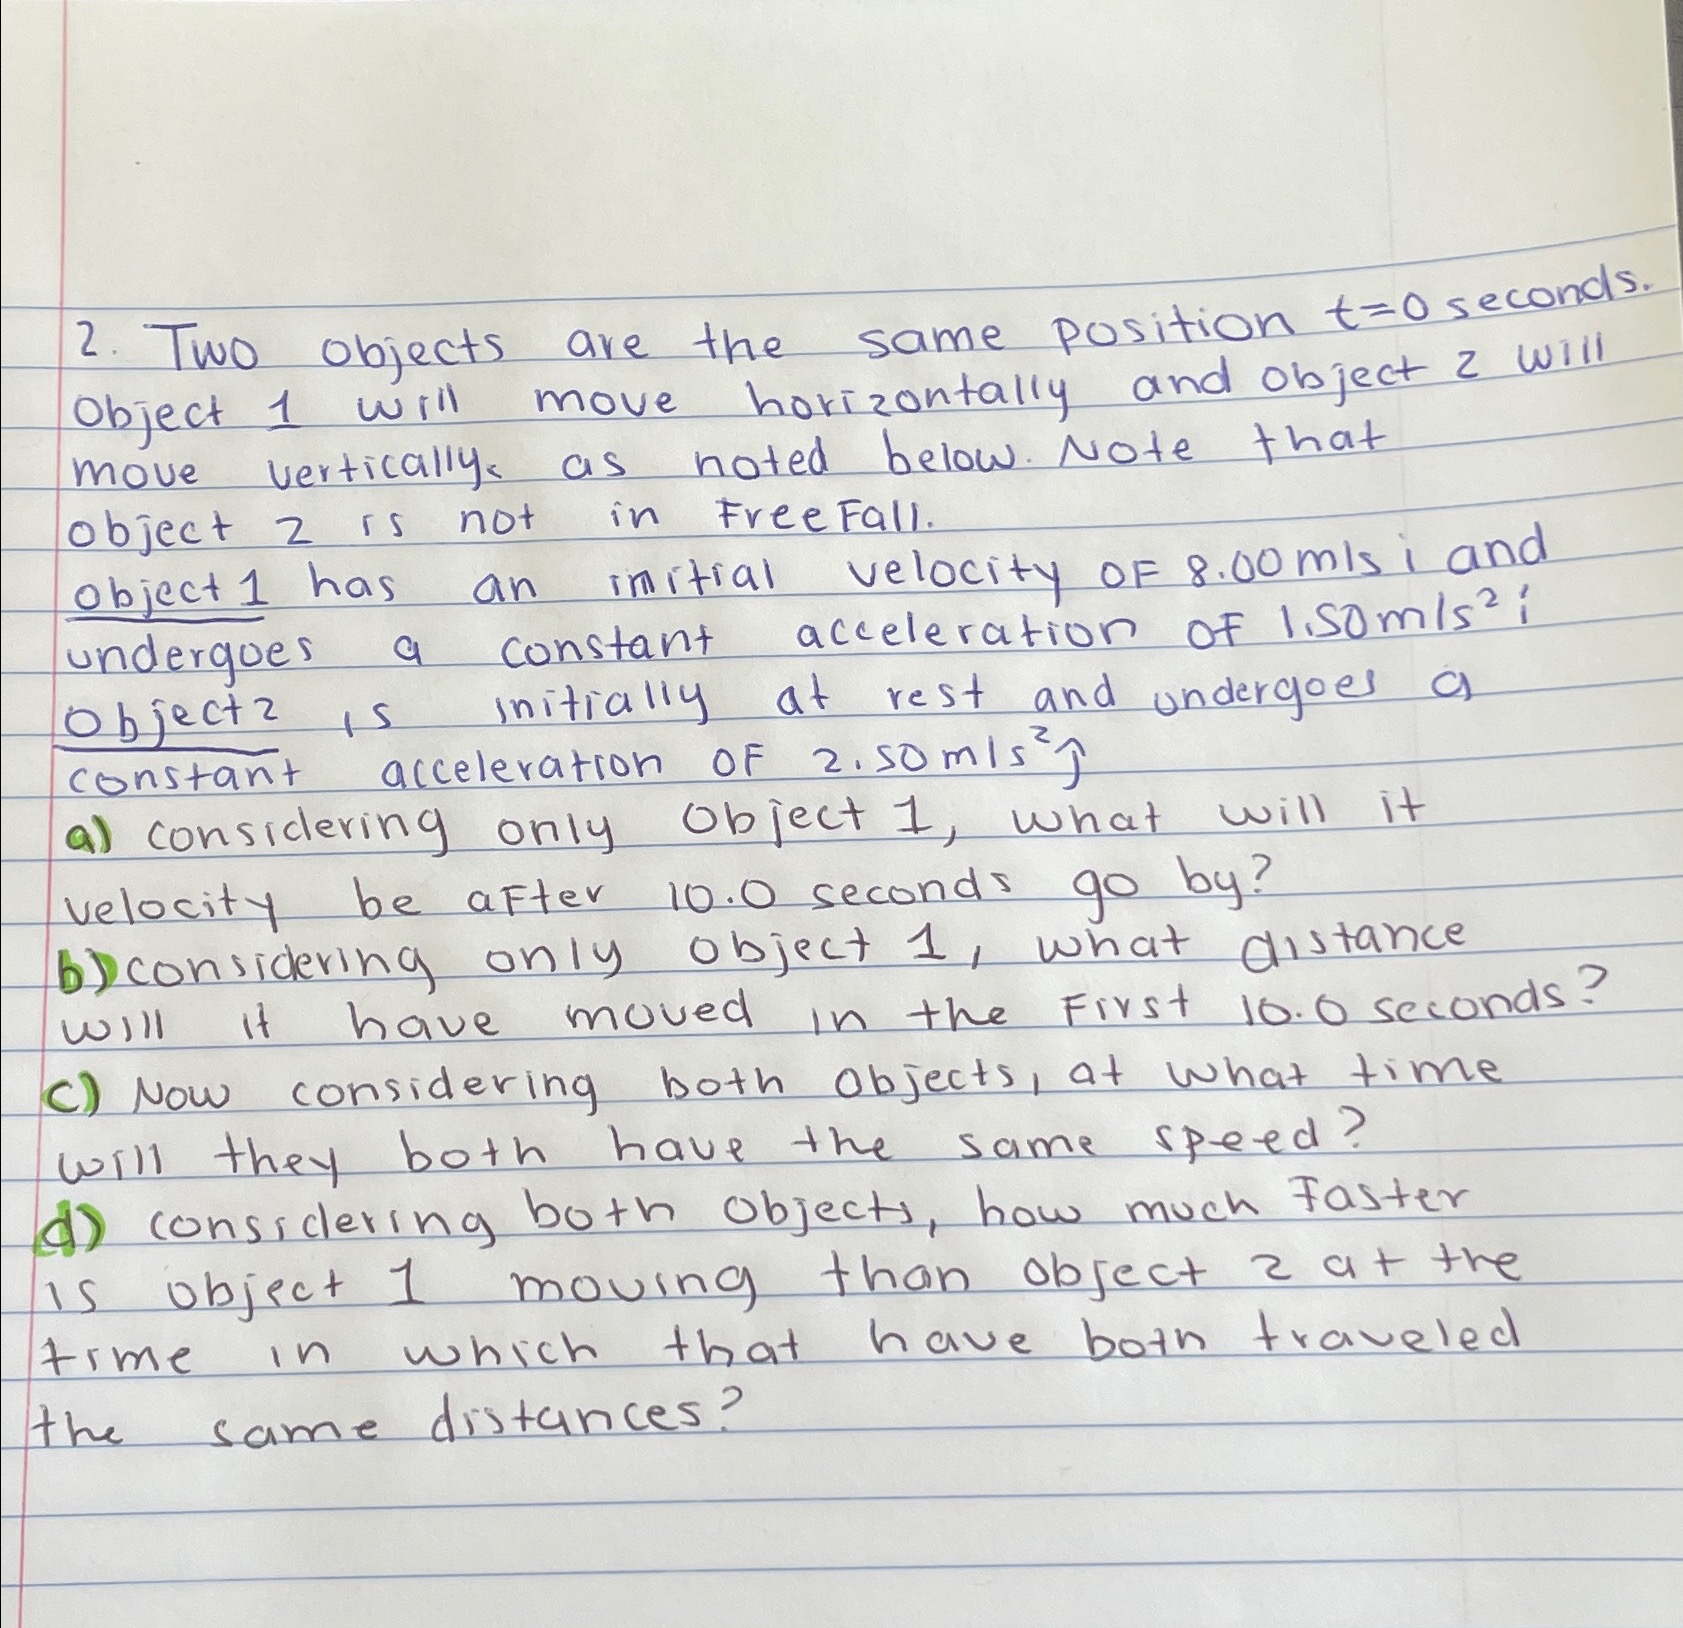 2. Two objects are the same position t=0 seconds.
Object 1 will move horizontally and object 2 will
move vertically as noted below. Note that
object 2 is not in FreeFall.
object 1 has an initial velocity OF 8.00 m/s i and
undergoes a constant acceleration OF 1.50 m/s² i
object 2 is initially at rest and undergoes a
constant acceleration OF 2.50 m/s² j
a) considering only Object 1, what will it
velocity be aFter 10.0 seconds go by?
b) considering only object 1, what distance
will it have moved in the First 10.0 seconds?
c) Now considering both objects, at what time
will they both have the same speed?
d) considering both objects, how much Faster
is object 1 moving than object 2 at the
time in which that have both traveled
the same distances?